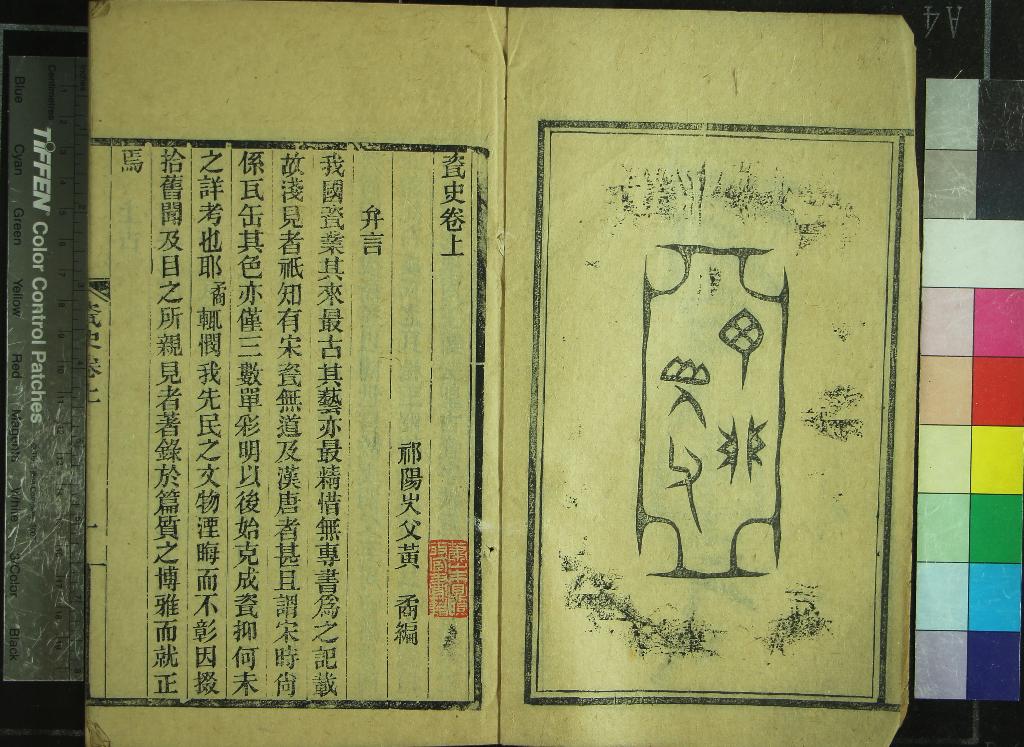 瓷史卷上
祁陽矢父黃 矞編
弁言
我國瓷業其來最古其藝亦最精惜無專書爲之記載
故淺見者祇知有宋瓷無道及漢唐者甚且謂宋時尙
係瓦缶其色亦僅三數單彩明以後始克成瓷抑何未
之詳考也耶矞輒憫我先民之文物湮晦而不彰因掇
拾舊聞及目之所親見者著錄於篇質之博雅而就正
焉
瓷史卷上
一
TIFFEN Color Control Patches
Blue Cyan Green Yellow Red Magenta White 3/Color Black
Centimetres
A4